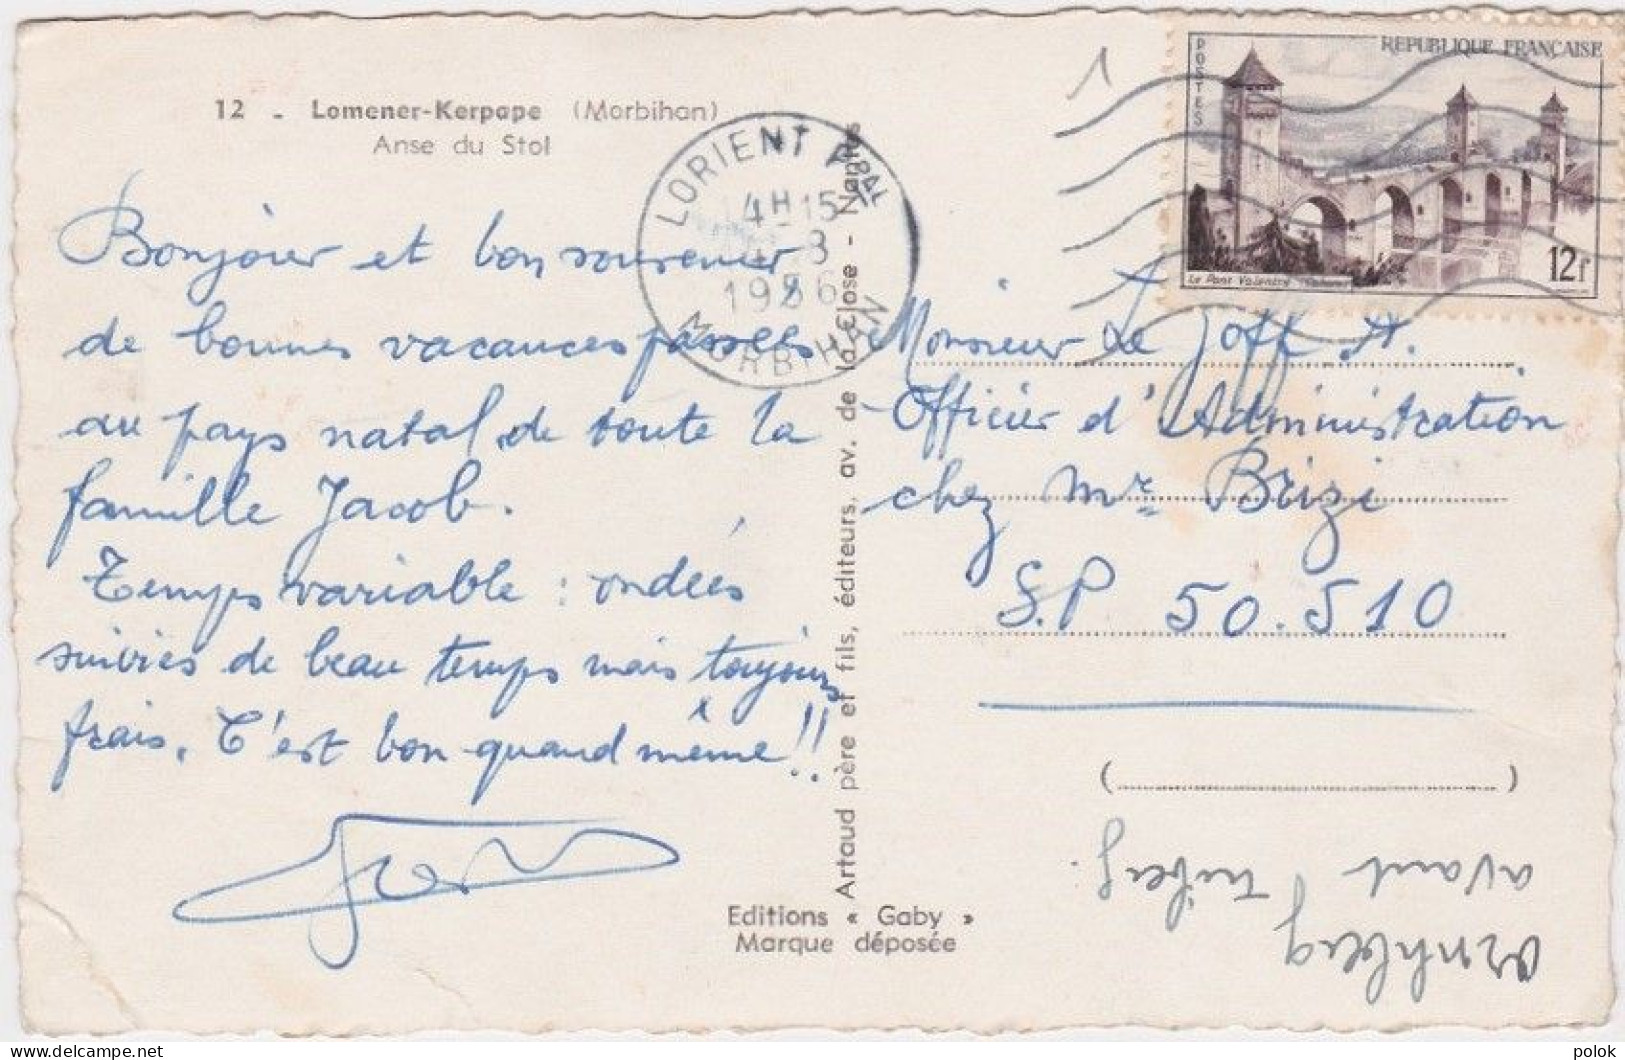 12 - Lomener-Kerpape (Morbihan)
Anse du Stol
Bonjour et bon souvenir
de bonnes vacances passées
au pays natal de toute la
famille Jacob.
Temps variable : ondées
suivies de beau temps mais toujours
frais. C'est bon quand même !!
Editions « Gaby »
Marque déposée
Artaud père et fils, éditeurs, av. de la Close - Nantes
LORIENT Pal
4H15
8
1956
MORBIHAN
1
POSTES
REPUBLIQUE FRANÇAISE
12f
Le Pont Valentré
Monsieur Le Goff A.
Officier d'Administration
chez Mr Brizi
S.P 50.510
(                    )
avant